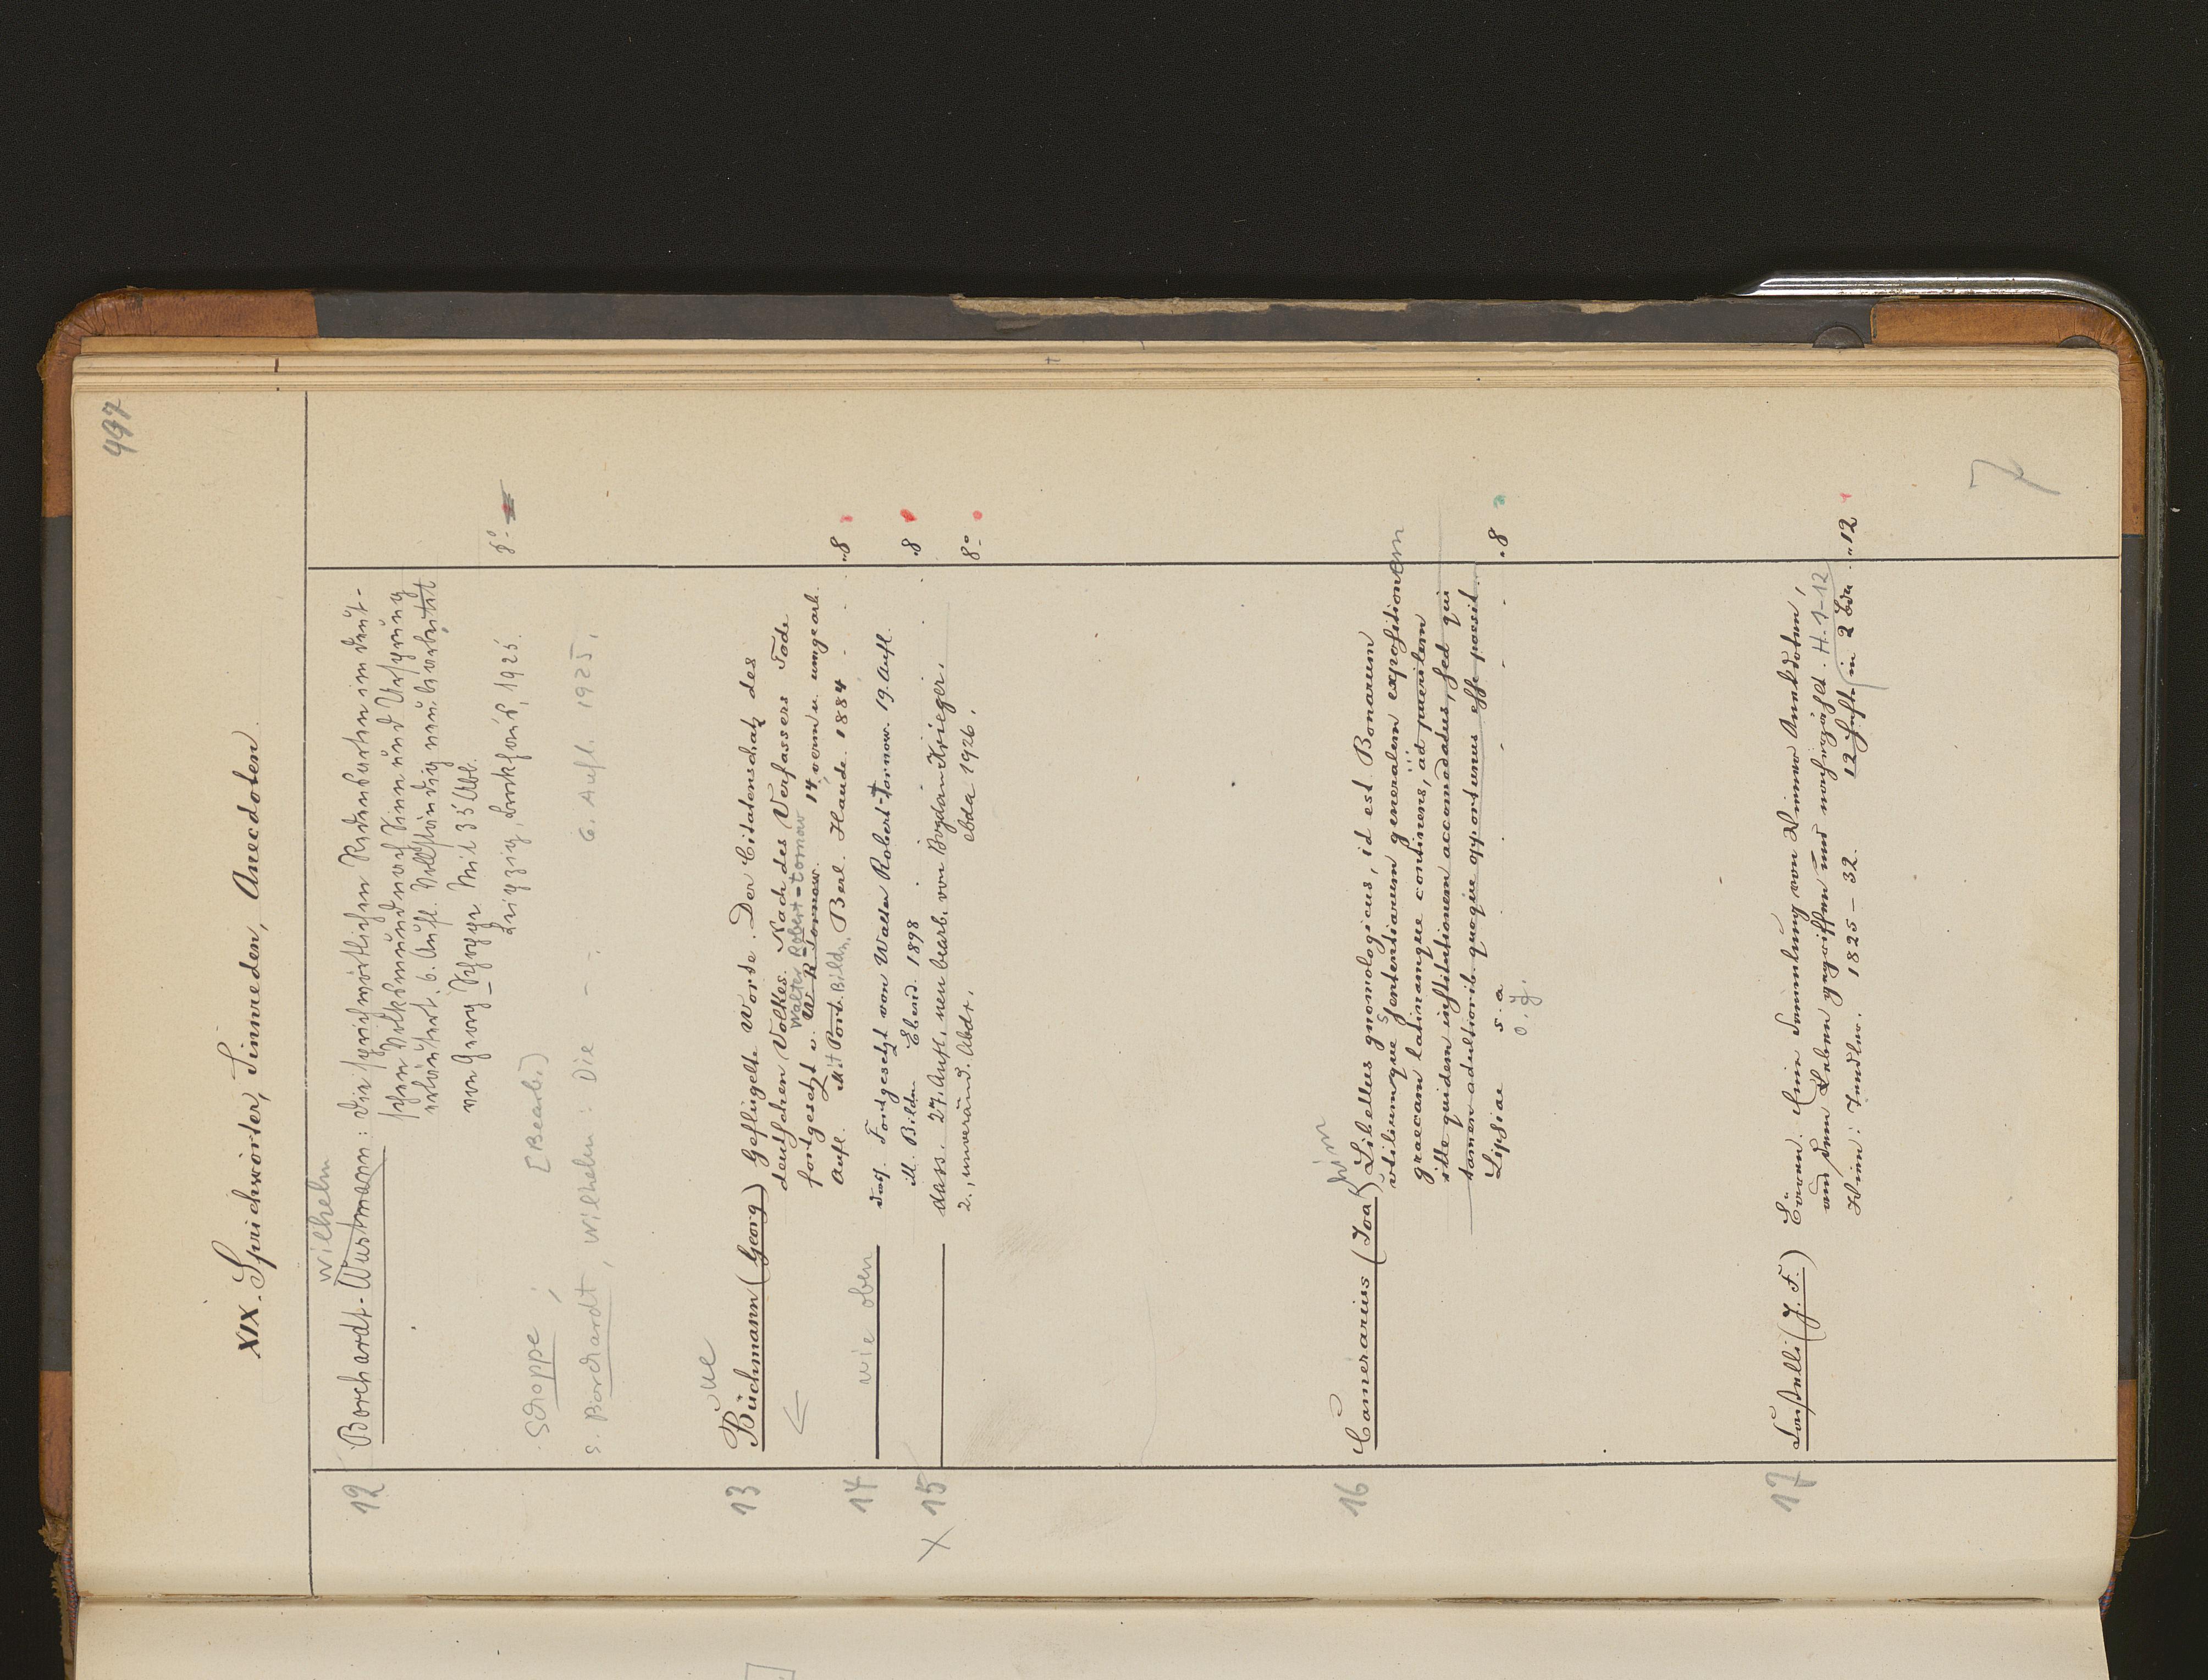 497
XIX. Sprichwörter, Sinnreden, Anecdoten.
Wilhelm
12 Borchardt-Wustmann: Die sprichwörtlichen Redensarten im deut-
schen Volksmunde nach Sinn und Ursprung
erläutert. 6. Aufl. Vollständig neu bearbeitet
von Georg Schoppe. Mit 35 Abb.
Leipzig, Brockhaus, 1925. 8°
Schoppe, [Bearb.]
s. Borchardt, Wilhelm: Die – . 6. Aufl. 1925.
ue
13 Büchmann (Georg) Geflügelte Worte. Der Citatenschatz des
deutschen Volkes. Nach des Verfassers Tode
Walter Robert-tornow
fortgesetzt v. W. R-Tornow. 14. verm u. umgearb.
Aufl. Mit Port. Bildn. Berl. Haude. 1884 . . 8
14 wie oben dass. Fortgesetzt von Walter Robert-tornow. 19. Aufl.
M. Bildn. Ebend. 1898 . . 8
X 15 dass. 27. Aufl. neu bearb. von Bogdan Krieger.
2., unveränd. Abdr. ebda 1926. 8°
him
16 Camerarius (Joa) Libellus gnomologicus, id est Bonarum
utiliumque sententiarum generalem expositionem
graecam latinamque continens, ad puerilem
ille quidem institutionem accomodatus, sed qui
tamen adultiorib. quoque opportunus esse possit.
Lipsiae s. a. . . . . 8
o. J.
17 Castelli (J. F.) Bären. Eine Sammlung von Wiener Anekdoten,
aus dem Leben gegriffen und nacherzählt. H. 1-12
Wien: Tendler. 1825 – 32. 12 Hefte in 2 Bdn . . 12
7